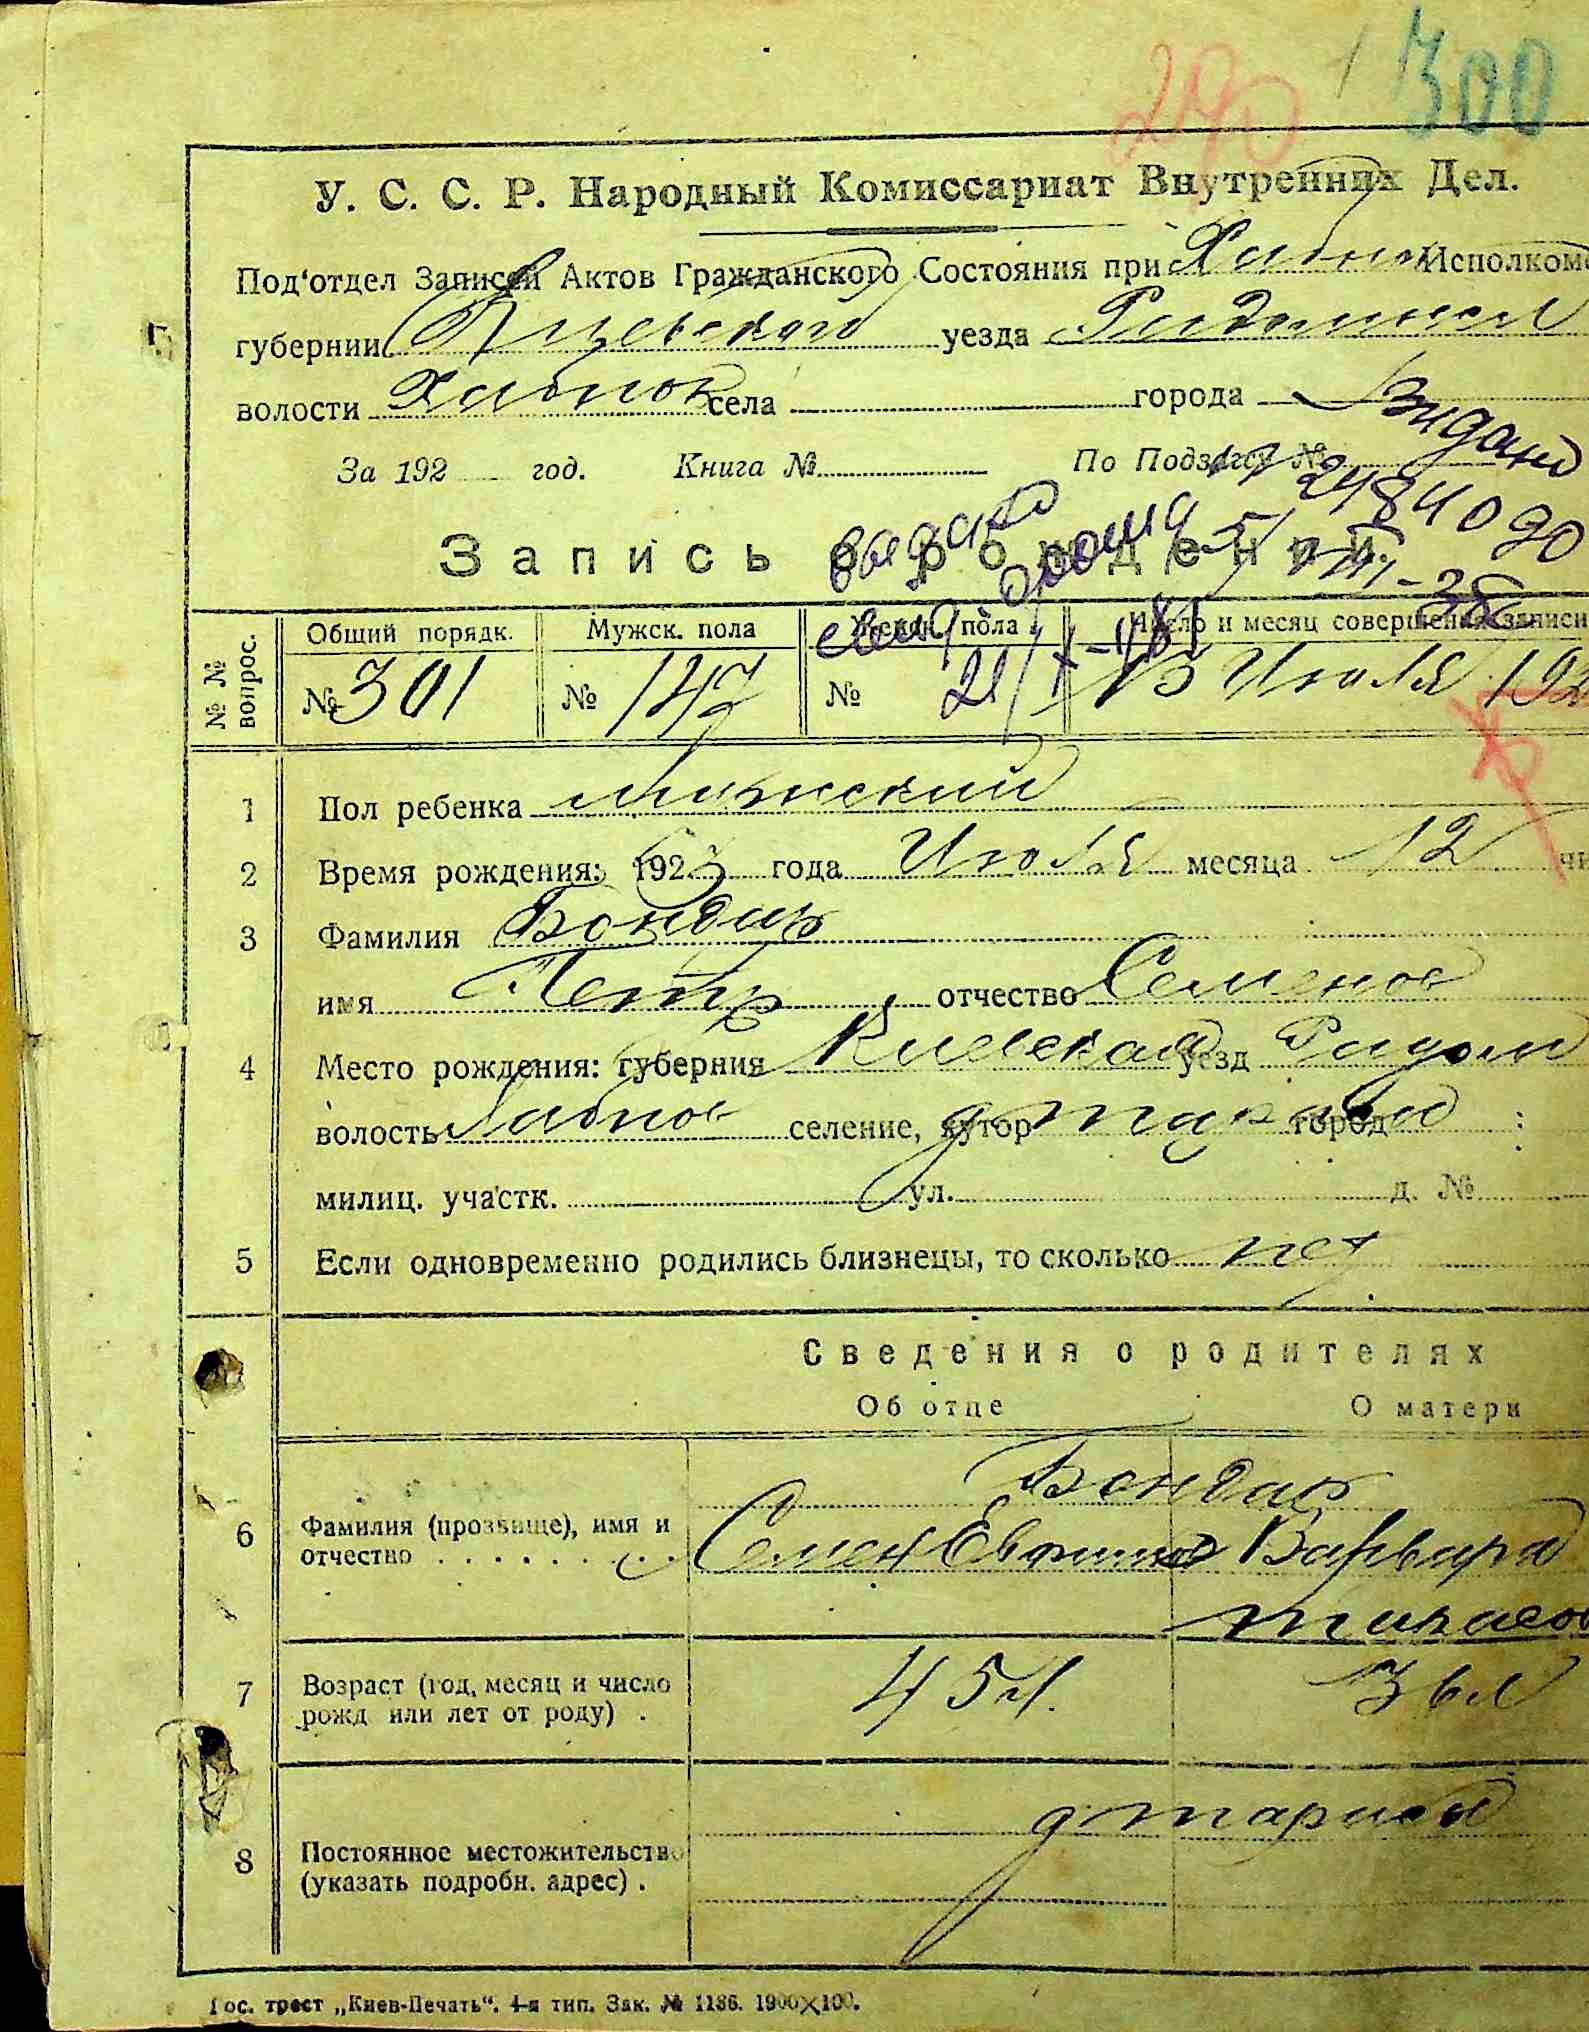 290 300
У. С. С. Р. Народный Комиссариат Внутренних Дел.
Под'отдел Записей Актов Гражданского Состояния при Хабн Исполкоме
губернии Киевского уезда Радомысл
волости Хабнов села города
За 192 год. Книга № По Подзагсу №
Видано
Запись о рождении.
выдано
21/X-48
№ № вопрос. Общий порядк. Мужск. пола Женск. пола Число и месяц совершения записи
№ 301 № 147 № 13 Июля 192
1 Пол ребенка мужеский
2 Время рождения: 1923 года Июля месяца 12 чи
3 Фамилия Бондар
имя Петр отчество Семенов
4 Место рождения: губерния Киевская уезд Радом
волость Хабнов селение, хутор город :
милиц. участк. ул. д. №
5 Если одновременно родились близнецы, то сколько нет
Сведения о родителях
Об отце О матери
Бондар
6 Фамилия (прозвище), имя и
отчество . . . . . . . . Семен Варвара
Тарасов
7 Возраст (год, месяц и число
рожд или лет от роду) . 45 л. 36 л
8 Постоянное местожительство
(указать подробн. адрес) .
Гос. трест „Киев-Печать“. 4-я тип. Зак. № 1186. 1900×100.